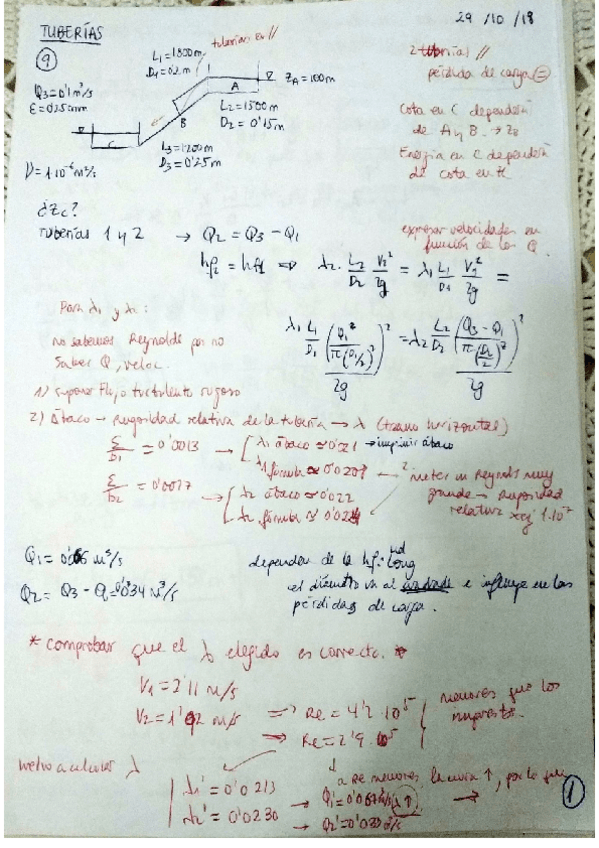 TUBERÍAS
29/10/18
9
L1=1800m
D1=0'2m
tuberías en //
Q3=0'1m³/s
ε=0'25mm
ZA=100m
A
L2=1500m
D2=0'15m
B
C
L3=1200m
D3=0'25m
ν=1·10⁻⁶m²/s
2 //
pérdida de carga =
Cota en C dependerá
de A y B. →
Energía en C dependerá
de cota en
¿Zc?
Tuberías 1 y 2 → Q2 = Q3 - Q1
expresar velocidades en
función de los Q.
hf2 = hf1 ⇒ λ2 · L2/D2 V2²/2g = λ1 L1/D1 V1²/2g =
Para λ1 y λ2:
no sabemos Reynolds por no
saber Q, veloc.
λ1 L1/D1 (Q1/π(D1/2)²)²/2g = λ2 L2/D2 (Q3-Q1/π(D2/2)²)²/2g
1) suponer Flujo turbulento rugoso
2) Ábaco → Rugosidad relativa de la tubería → λ (tramo horizontal)
ε/D1 = 0'0013 → λ1 ábaco ≈ 0'021 → imprimir ábaco
λ1 fórmula ≈ 0'0207
ε/D2 = 0'0017 → λ2 ábaco ≈ 0'022
λ2 fórmula ≈
meter un Reynolds muy
grande → Rugosidad
relativa
Q1 = m³/s
Q2 = Q3 - Q1 = 0'034 m³/s
depender de la hf: Long
el diámetro va al e influye en las
pérdidas de carga.
* comprobar que el λ elegido es correcto. *
V1 = 2'11 m/s
V2 = 1'92 m/s
⇒ Re = 4'2·10⁵
⇒ Re = 2'9·10⁵
menores que los
supuestos.
vuelvo a calcular λ
λ1' = 0'0213
λ2' = 0'0230
a Re menores, la curva ↑, por lo que
→ Q1' = 0'067m³/s ↑ →
→ Q2' = 0'033 m³/s
1